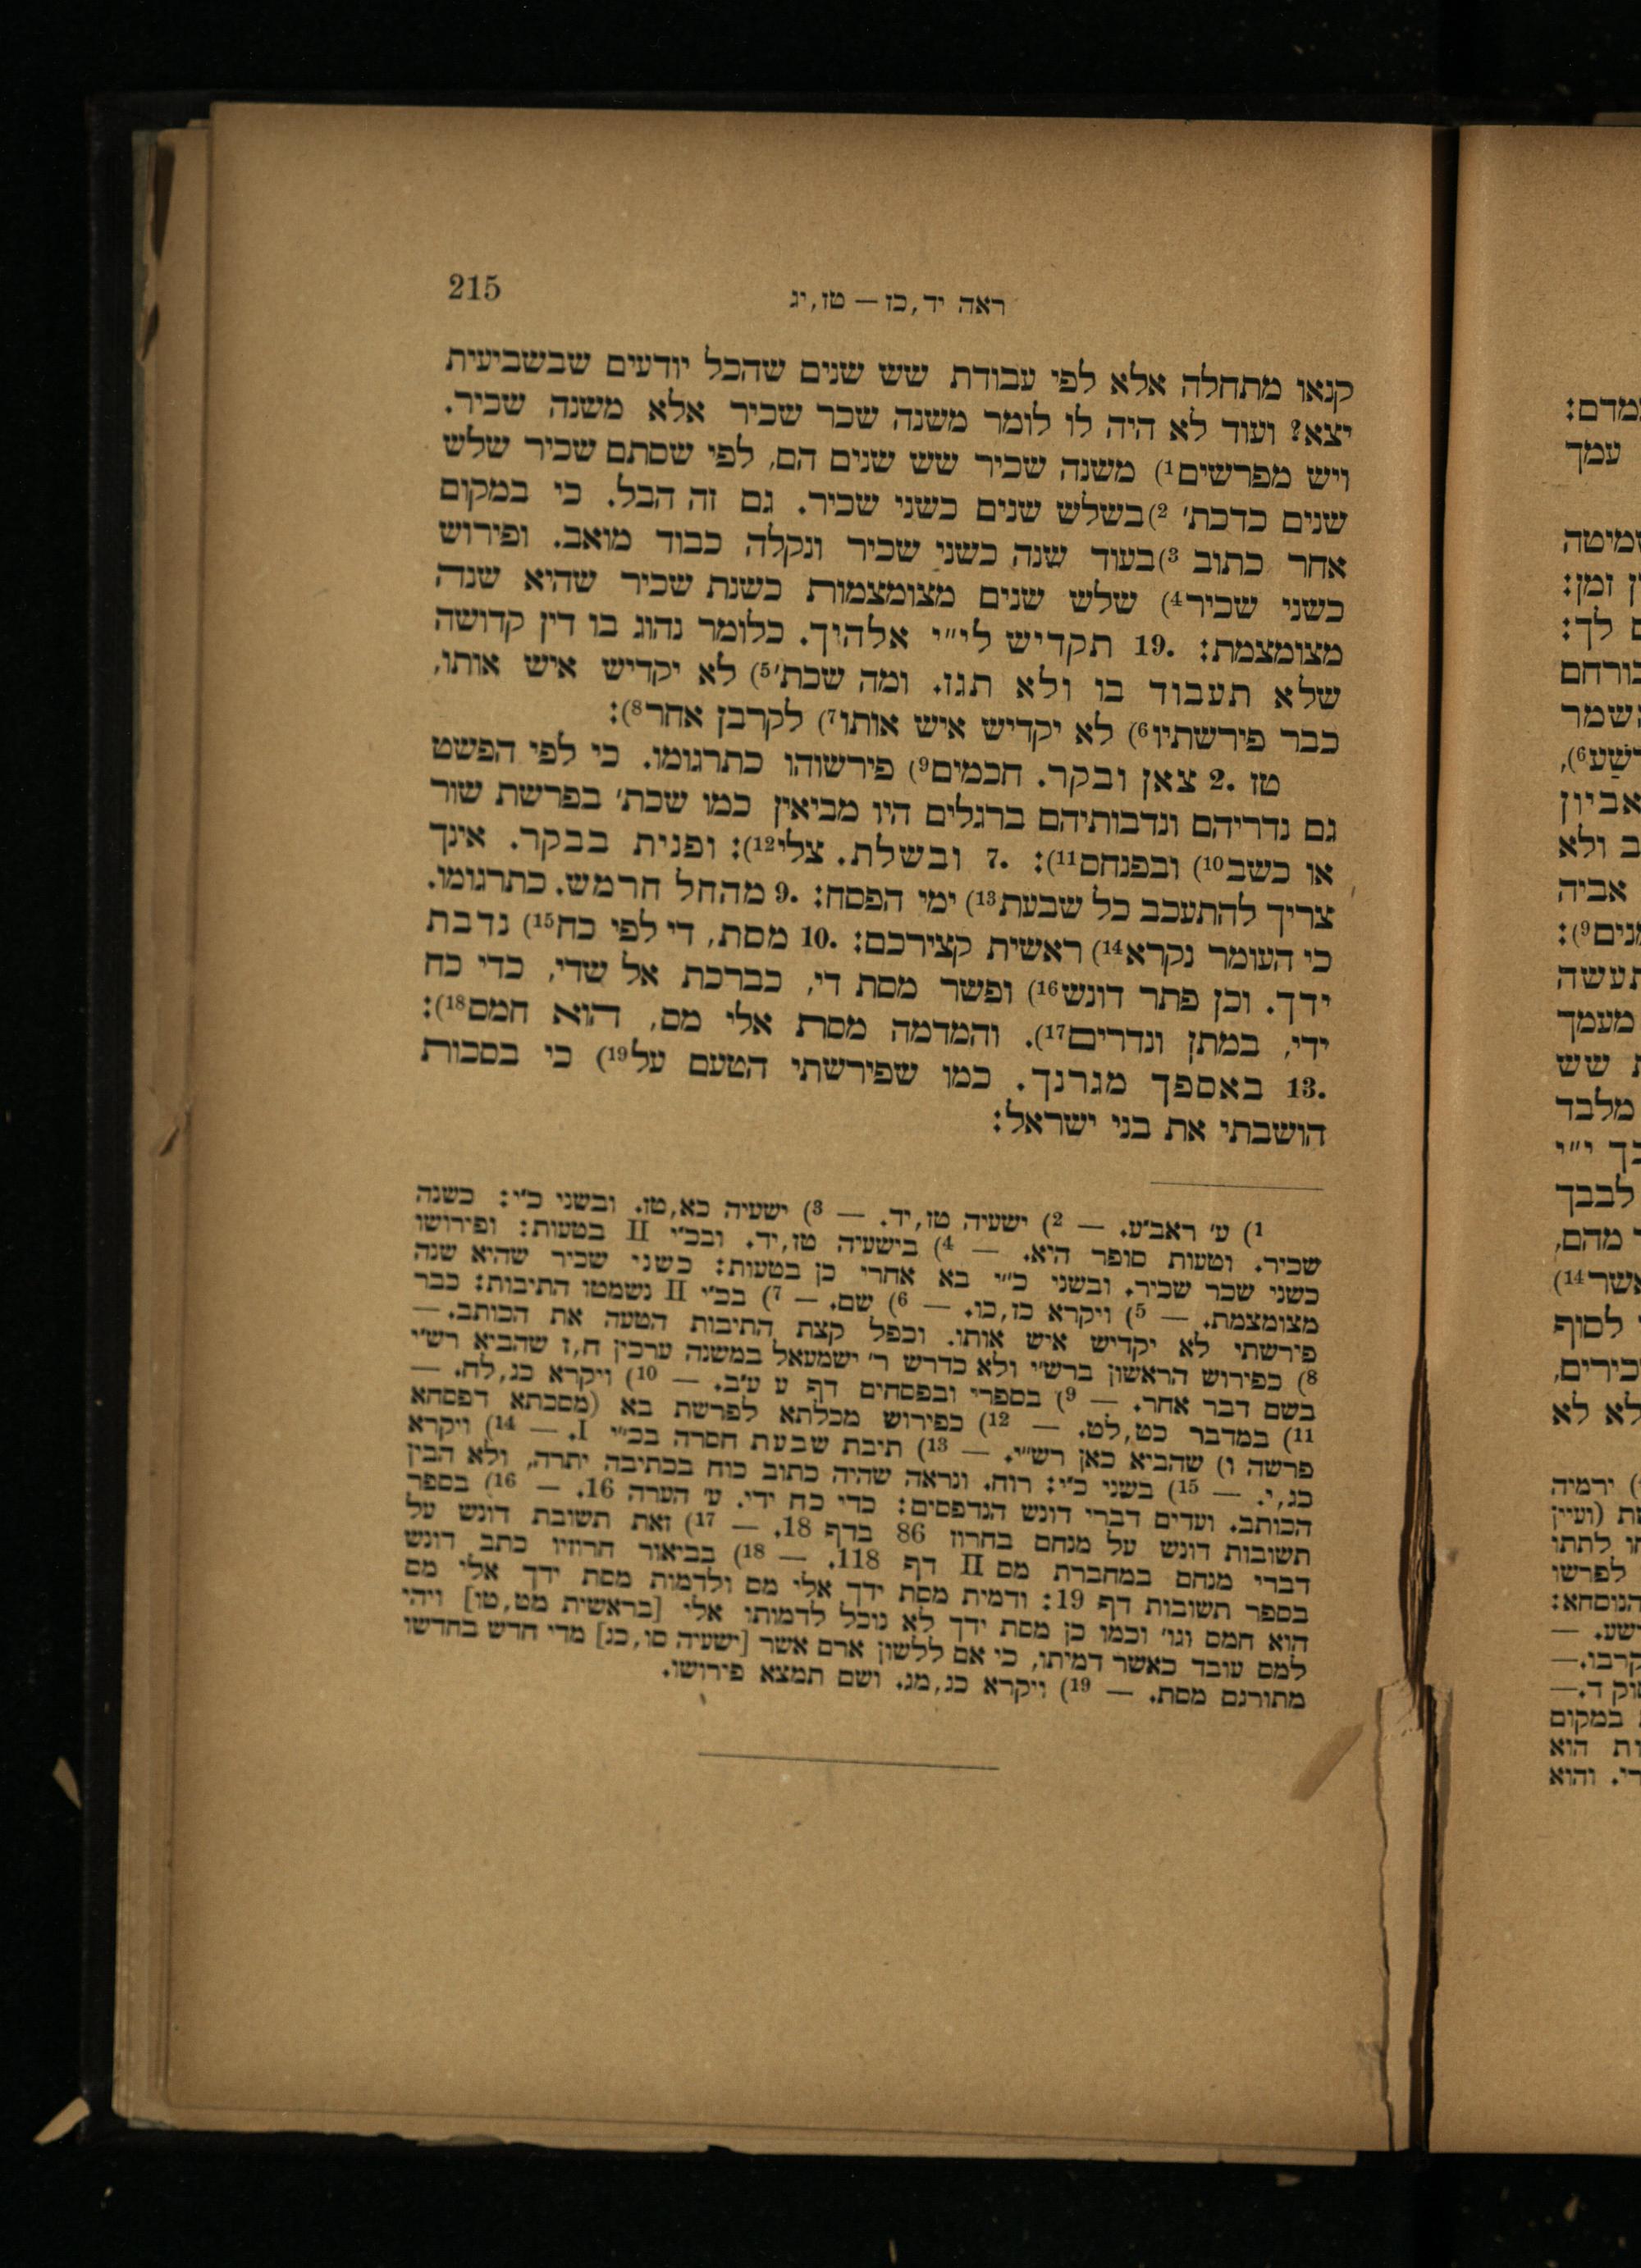 215
ראה יד,כז — טז,יג
קנאו מתחלה אלא לפי עבודת שש שנים שהכל יודעים שבשביעית
יצא? ועוד לא היה לו לומר משנה שכר שכיר אלא משנה שכיר.
ויש מפרשים1) משנה שכיר שש שנים הם, לפי שסתם שכיר שלש
שנים כדכת׳ 2)בשלש שנים כשני שכיר. גם זה הבל. כי במקום
אחר כתוב 3)בעוד שנה כשני שכיר ונקלה כבוד מואב. ופירוש
כשני שכיר4) שלש שנים מצומצמות כשנת שכיר שהיא שנה
מצומצמת: 19. תקדיש לי״י אלהיך. כלומר נהוג בו דין קדושה
שלא תעבוד בו ולא תגז. ומה שכת׳5) לא יקדיש איש אותו,
כבר פירשתיו6) לא יקדיש איש אותו7) לקרבן אחר8):
טז 2. צאן ובקר. חכמים9) פירשוהו כתרגומו. כי לפי הפשט
גם נדריהם ונדבותיהם ברגלים היו מביאין כמו שכת׳ בפרשת שור
או כשב10) ובפנחם11): 7. ובשלת. צלי12): ופנית בבקר. אינך
צריך להתעכב כל שבעת13) ימי הפסח: 9. מהחל חרמש. כתרגומו.
כי העומר נקרא14) ראשית קצירכם: 10. מסת, די לפי כח15) נדבת
ידך. וכן פתר דונש16) ופשר מסת די, כברכת אל שדי, כדי כח
ידי, במתן ונדרים17). והמדמה מסת אלי מס, הוא חמס18):
13. באספך מגרנך. כמו שפירשתי הטעם על19) כי בסכות
הושבתי את בני ישראל:
1) ע׳ ראב״ע. — 2) ישעיה טז,יד. — 3) ישעיה כא,טז. ובשני כ״י: כשנה
שכיר. וטעות סופר היא. — 4) בישעיה טז,יד. ובכ״י II בטעות: ופירושו
כשני שכר שכיר. ובשני כ״י בא אחרי כן בטעות: כשני שכיר שהיא שנה
מצומצמת. — 5) ויקרא כז,כו. — 6) שם. — 7) בכ״י II נשמטו התיבות: כבר
פירשתי לא יקדיש איש אותו. וכפל קצת התיבות הטעה את הכותב. —
8) כפירוש הראשון ברש״י ולא כדרש ר׳ ישמעאל במשנה ערכין ח,ז שהביא רש״י
בשם דבר אחר. — 9) בספרי ובפסחים דף ע ע״ב. — 10) ויקרא כג,לח. —
11) במדבר כט,לט. — 12) כפירוש מכלתא לפרשת בא (מסכתא דפסחא
פרשה ו) שהביא כאן רש״י. — 13) תיבת שבעת חסרה בכ״י I. — 14) ויקרא
כג,י. — 15) בשני כ״י: רוח. ונראה שהיה כתוב כוח בכתיבה יתרה, ולא הבין
הכותב. ועדים דברי דונש הנדפסים: כדי כח ידי. ע׳ הערה 16. — 16) בספר
תשובות דונש על מנחם בחרוז 86 בדף 18. — 17) זאת תשובת דונש על
דברי מנחם במחברת מס II דף 118. — 18) בביאור חרוזיו כתב דונש
בספר תשובות דף 19: ודמית מסת ידך אלי מס ולדמות מסת ידך אלי מס
הוא חמס וגו׳ וכמו כן מסת ידך לא נוכל לדמותו אלי [בראשית מט,טו] ויהי
למס עובד כאשר דמיתו, כי אם ללשון ארם אשר [ישעיה סו,כג] מדי חדש בחדשו
מתורגם מסת. — 19) ויקרא כג,מג. ושם תמצא פירושו.